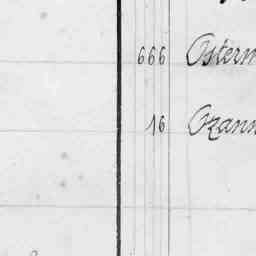 666 Osterm
16 Ozann